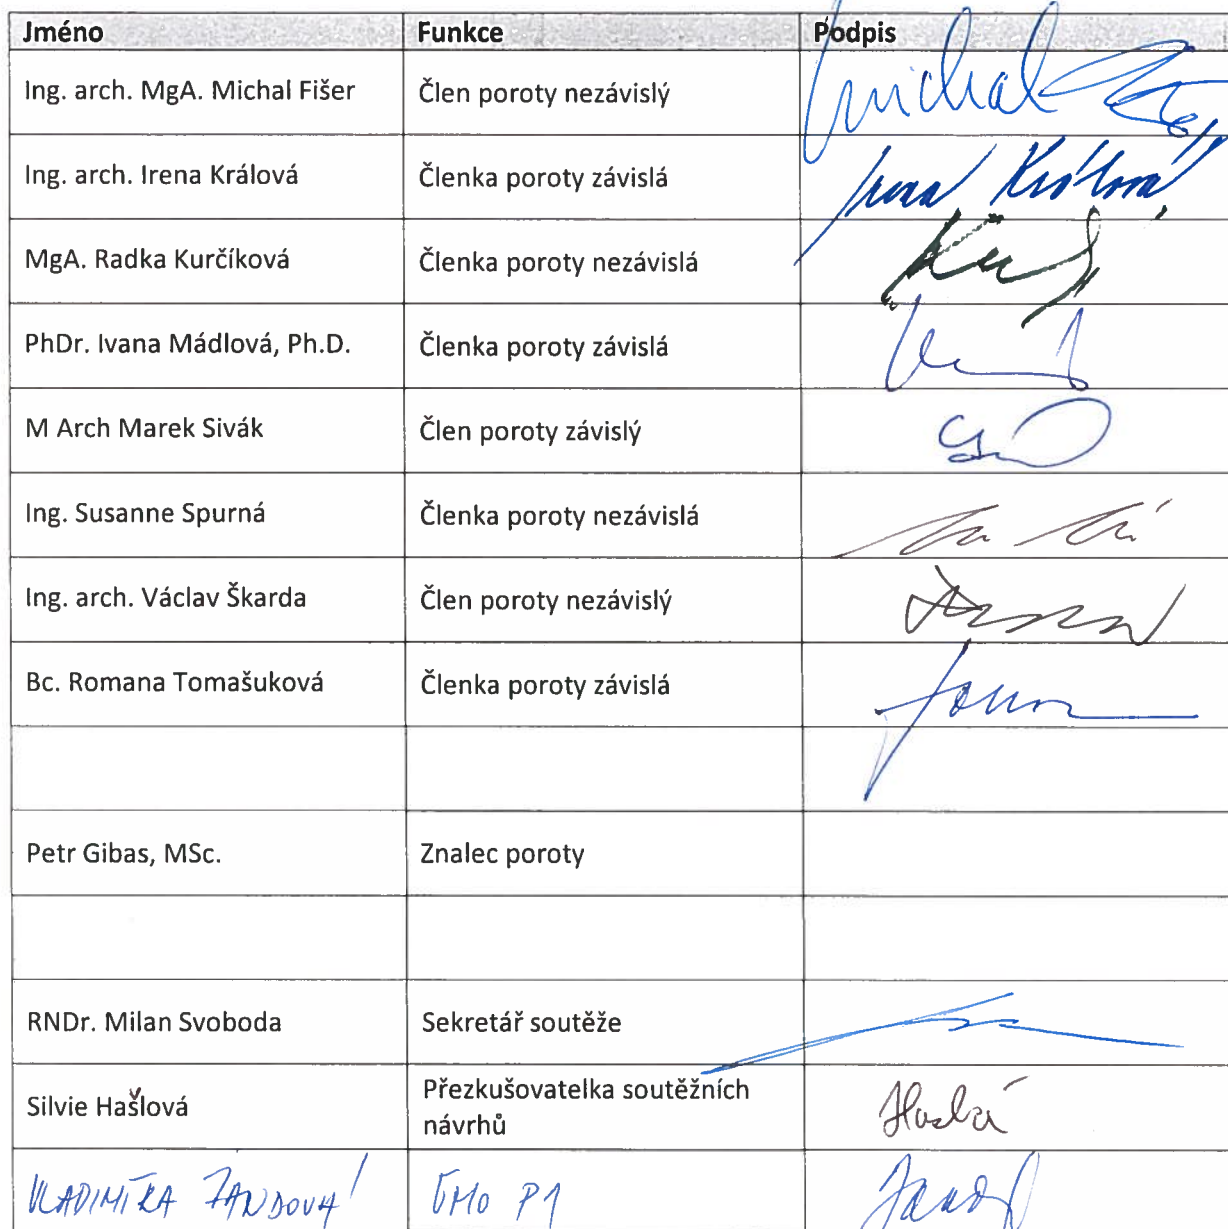 Jméno Funkce Podpis
Ing. arch. MgA. Michal Fišer Člen poroty nezávislý Michal
Ing. arch. Irena Králová Členka poroty závislá Irena Králová
MgA. Radka Kurčíková Členka poroty nezávislá
PhDr. Ivana Mádlová, Ph.D. Členka poroty závislá
M Arch Marek Sivák Člen poroty závislý
Ing. Susanne Spurná Členka poroty nezávislá
Ing. arch. Václav Škarda Člen poroty nezávislý
Bc. Romana Tomašuková Členka poroty závislá
Petr Gibas, MSc. Znalec poroty
RNDr. Milan Svoboda Sekretář soutěže
Silvie Hašlová Přezkušovatelka soutěžních
návrhů
VLADIMÍRA ŽANDOVÁ ÚMO P1